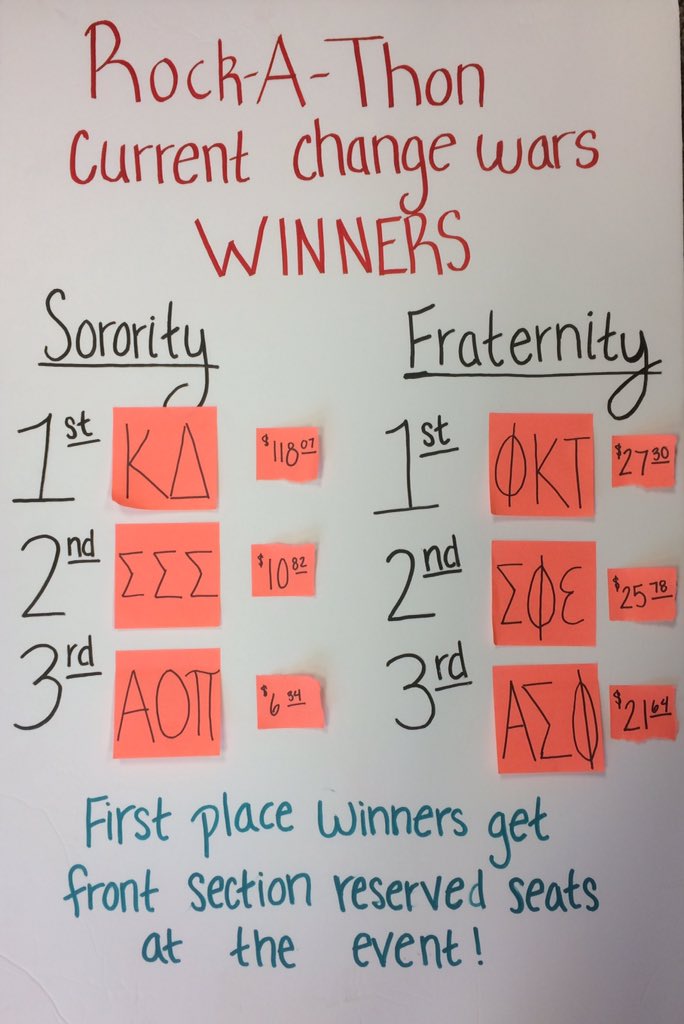 Rock-A-Thon
Current change wars
WINNERS
Sorority
1st ΚΔ $118.07
2nd ΣΣΣ $10.82
3rd ΑΟΠ $6.34
Fraternity
1st ΦΚΤ $27.30
2nd ΣΦΕ $25.78
3rd ΑΣΦ $21.64
First place winners get
front section reserved seats
at the event!